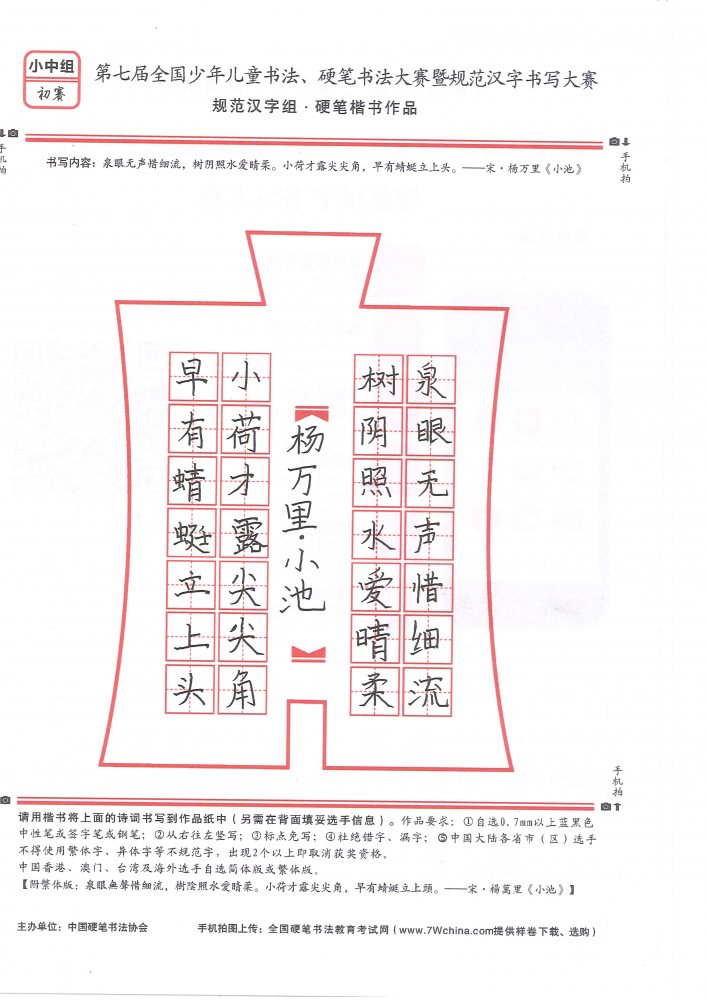 小中组
初赛
第七届全国少年儿童书法、硬笔书法大赛暨规范汉字书写大赛
规范汉字组·硬笔楷书作品
手机拍
手机拍
书写内容：泉眼无声惜细流，树阴照水爱晴柔。小荷才露尖尖角，早有蜻蜓立上头。——宋·杨万里《小池》
泉眼无声惜细流
树阴照水爱晴柔
杨万里·小池
小荷才露尖尖角
早有蜻蜓立上头
手机拍
请用楷书将上面的诗词书写到作品纸中（另需在背面填妥选手信息）。作品要求：①自选0.7mm以上蓝黑色
中性笔或签字笔或钢笔；②从右往左竖写；③标点免写；④杜绝错字、漏字；⑤中国大陆各省市（区）选手
不得使用繁体字、异体字等不规范字，出现2个以上即取消获奖资格。
中国香港、澳门、台湾及海外选手自选简体版或繁体版。
【附繁体版：泉眼無聲惜細流，樹陰照水愛晴柔。小荷才露尖尖角，早有蜻蜓立上頭。——宋·楊萬里《小池》】
主办单位：中国硬笔书法协会
手机拍图上传：全国硬笔书法教育考试网（www.7Wchina.com提供样卷下载、选购）